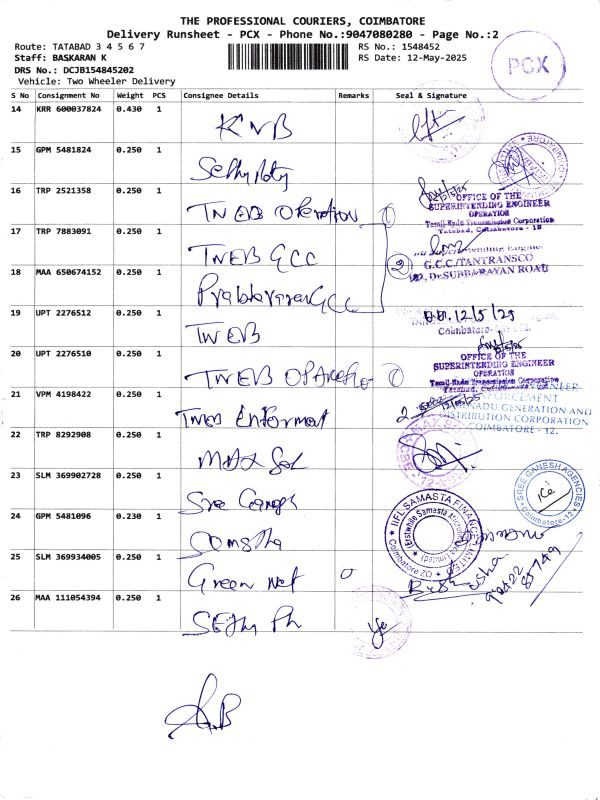 THE PROFESSIONAL COURIERS, COIMBATORE
Delivery Runsheet - PCX - Phone No.:9047080280 - Page No.:2
Route: TATABAD 3 4 5 6 7
RS No.: 1548452
Staff: BASKARAN K
RS Date: 12-May-2025
DRS No.: DCJB154845202
Vehicle: Two Wheeler Delivery
PCX
S No Consignment No Weight PCS Consignee Details Remarks Seal & Signature
14 KRR 600037824 0.430 1
KNB
15 GPM 5481824 0.250 1
16 TRP 2521358 0.250 1
TNEB Operation 1
OFFICE OF THE
SUPERINTENDING ENGINEER
OPERATION
Tamil Nadu Transmission Corporation
Tatabad, Coimbatore - 12
17 TRP 7883091 0.250 1
TNEB GCC
2
G.C.C./TANTRANSCO
182, Dr.SUBBARAYAN ROAD
18 MAA 650674152 0.250 1
GCC
19 UPT 2276512 0.250 1
TNEB
12/5/25
Coimbatore
20 UPT 2276510 0.250 1
TNEB
OFFICE OF THE
SUPERINTENDING ENGINEER
OPERATION
Tamil Nadu Transmission Corporation
Tatabad, Coimbatore
21 VPM 4198422 0.250 1
TNEB
2
ENFORCEMENT
GENERATION AND
DISTRIBUTION CORPORATION
COIMBATORE - 12.
22 TRP 8292908 0.250 1
Max Sol
23 SLM 369902728 0.250 1
Sree Ganesh
SREE GANESH AGENCIES
Coimbatore-12
24 GPM 5481096 0.230 1
IIFL SAMASTA FINANCE LIMITED
Coimbatore ZO
25 SLM 369934005 0.250 1
Green Net
26 MAA 111054394 0.250 1